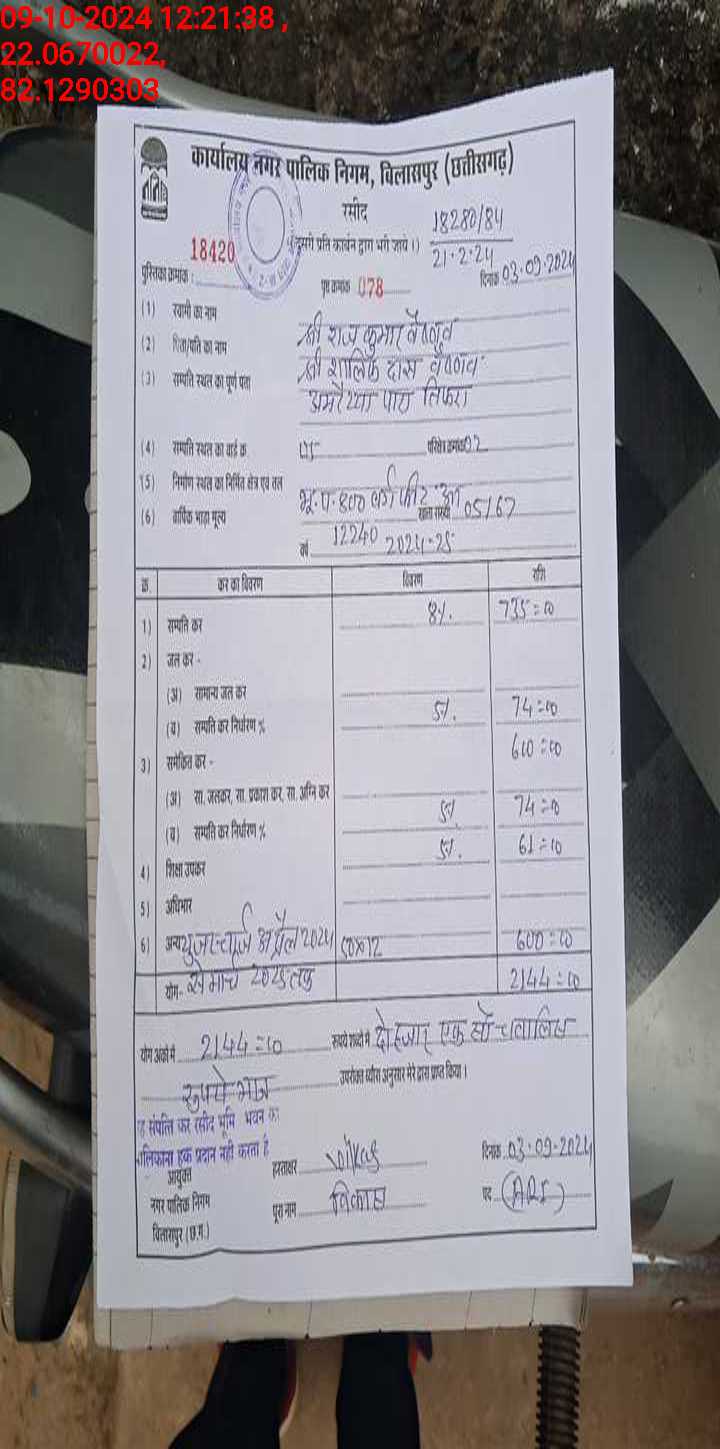 09-10-2024 12:21:38 ,
22.0670022,
82.1290303
कार्यालय नगर पालिक निगम, बिलासपुर (छत्तीसगढ़)
रसीद
(दूसरी प्रति कार्बन द्वारा भरी जाये।) 18280/84
21.2.24
पुस्तिका क्रमांक : 18420 पृष्ठ क्रमांक 078 दिनांक 03.09.2024
(1) स्वामी का नाम श्री राज कुमार वैष्णव
(2) पिता/पति का नाम श्री शालिक दास वैष्णव
(3) सम्पत्ति स्थल का पूर्ण पता अमरैय्या पारा तिफरा
(4) सम्पत्ति स्थल का वार्ड क्र. 05 परिक्षेत्र क्रमांक 02
(5) निर्माण स्थल का निर्मित क्षेत्र एवं तल भू.प. 800 वर्ग फीट
(6) वार्षिक भाड़ा मूल्य 12240 05/67
वर्ष 2024-25
क्र. कर का विवरण विवरण राशि
1) सम्पत्ति कर 8%. 735=00
2) जल कर -
(अ) सामान्य जल कर
(ब) सम्पत्ति कर निर्धारण % 5%. 74=00
3) समेकित कर - 600=00
(अ) सा. जलकर, सा. प्रकाश कर, सा. अग्नि कर
(ब) सम्पत्ति कर निर्धारण % 5% 74=00
4) शिक्षा उपकर 5%. 61=00
5) अधिभार
6) अन्य यूजर चार्ज अप्रैल 2024 50x12 600=00
योग- से मार्च 2025 तक 2144=00
योग अंकों में 2144=00 रूपये शब्दों में दो हजार एक सौ चवालिस
रुपये मात्र उपरोक्त ब्यौरा अनुसार मेरे द्वारा प्राप्त किया।
संपत्ति कर रसीद भूमि भवन का
हक प्रदान नहीं करता है
आयुक्त
नगर पालिक निगम
बिलासपुर (छ.ग.)
हस्ताक्षर Vikas दिनांक 03-09-2024
पूरा नाम विकास पद (ARI)